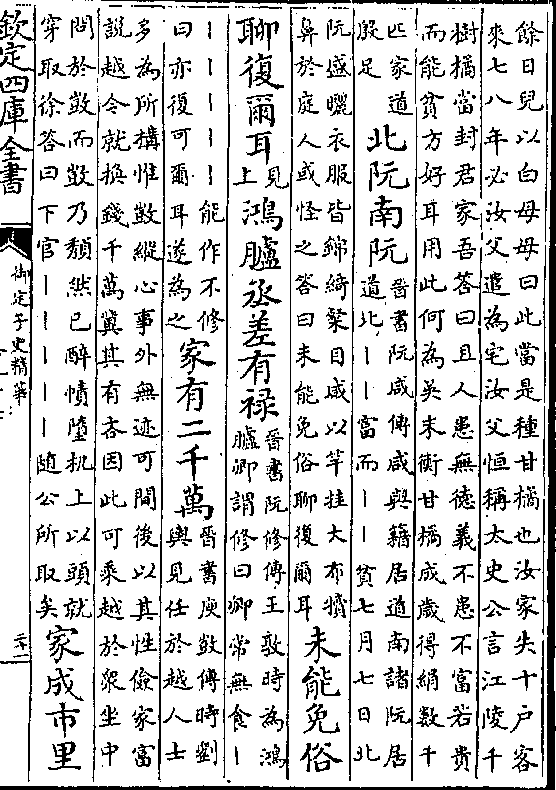 餘日兒以白母母曰此當是種甘橘也汝家失十戶客
來七八年必汝父遣為宅汝父恒稱太史公言江陵千
樹橘當封君家吾答曰且人患無德義不患不富若貴
而能貧方好耳用此何為吳末衡甘橘成歲得絹數千
匹家道
殷足
北阮南阮
晉書阮咸傳咸與籍居道南諸阮居
道北丨丨富而丨丨貧七月七日北
阮盛曬衣服皆錦綺粲目咸以竿挂大布犢
鼻於庭人或怪之答曰未能免俗聊復爾耳
未能免俗
聊復爾耳
見
上
鴻臚丞差有禄
晉書阮修傳王敦時為鴻
臚卿謂修曰卿常無食丨
丨丨丨丨丨能作不修
曰亦復可爾耳遂為之
家有二千萬
晉書庾敳傳時劉
輿見任於越人士
多為所構惟敳縱心事外無迹可間後以其性儉家富
說越令就換錢千萬冀其有吝因此可乘越於衆坐中
問於敳而敳乃頹然已醉幘墮机上以頭就
穿取徐答曰下官丨丨丨丨丨隨公所取矣
家成市里
欽定四庫全書
御定子史精華